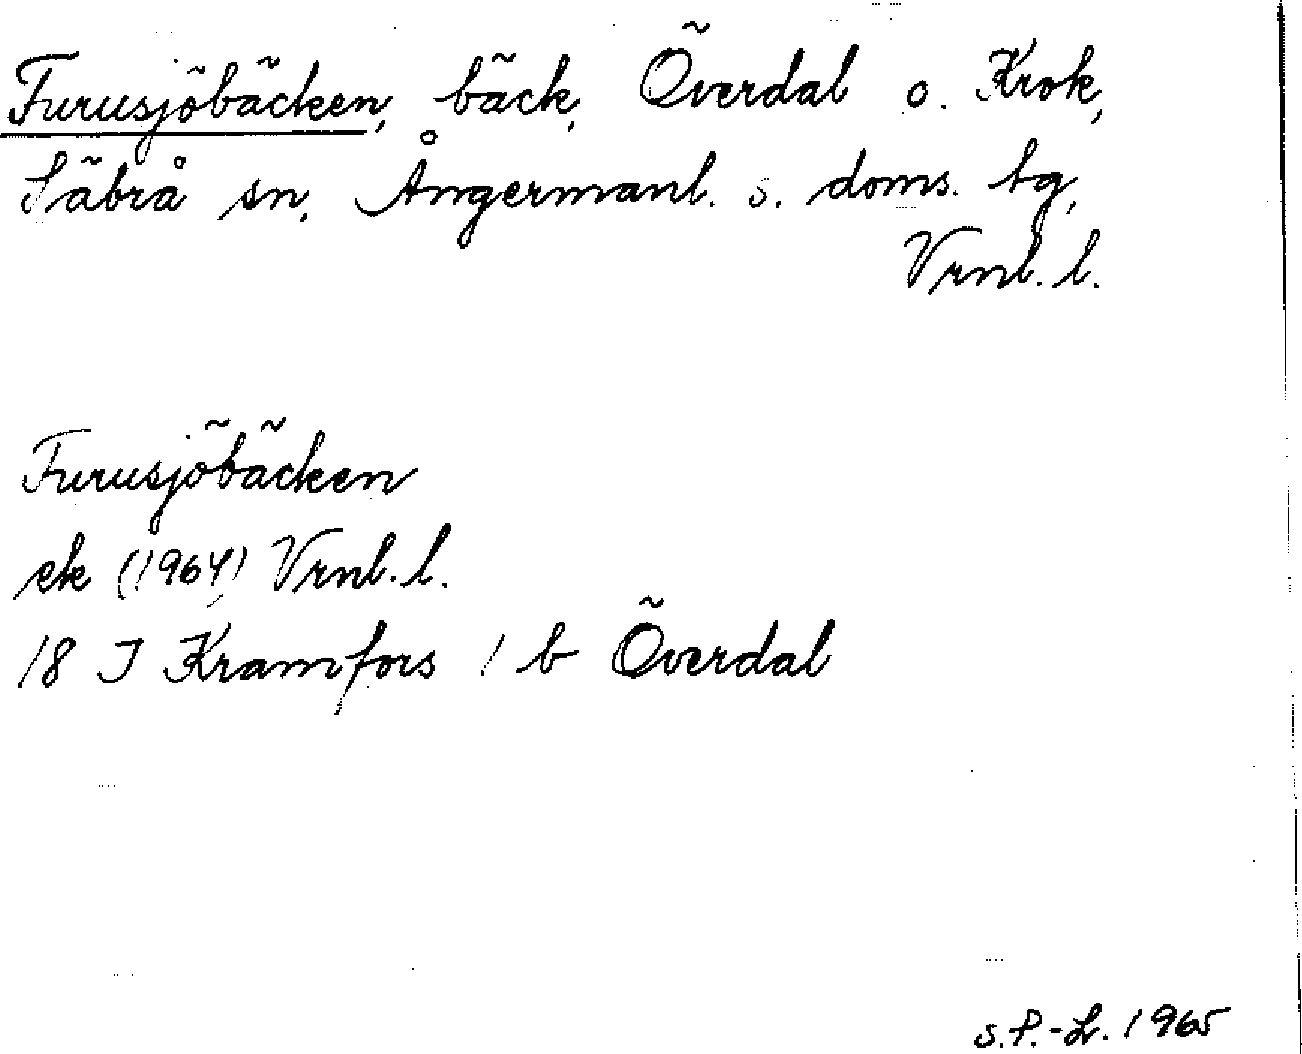 Furusjöbäcken, bäck, Överdal o. Krok,
Säbrå sn, Ångermanl. s. doms. tg,
Vrnl. l.
Furusjöbäcken
ek (1964) Vrnl. l.
18 I Kramfors 1 b Överdal
S.P.-L. 1965